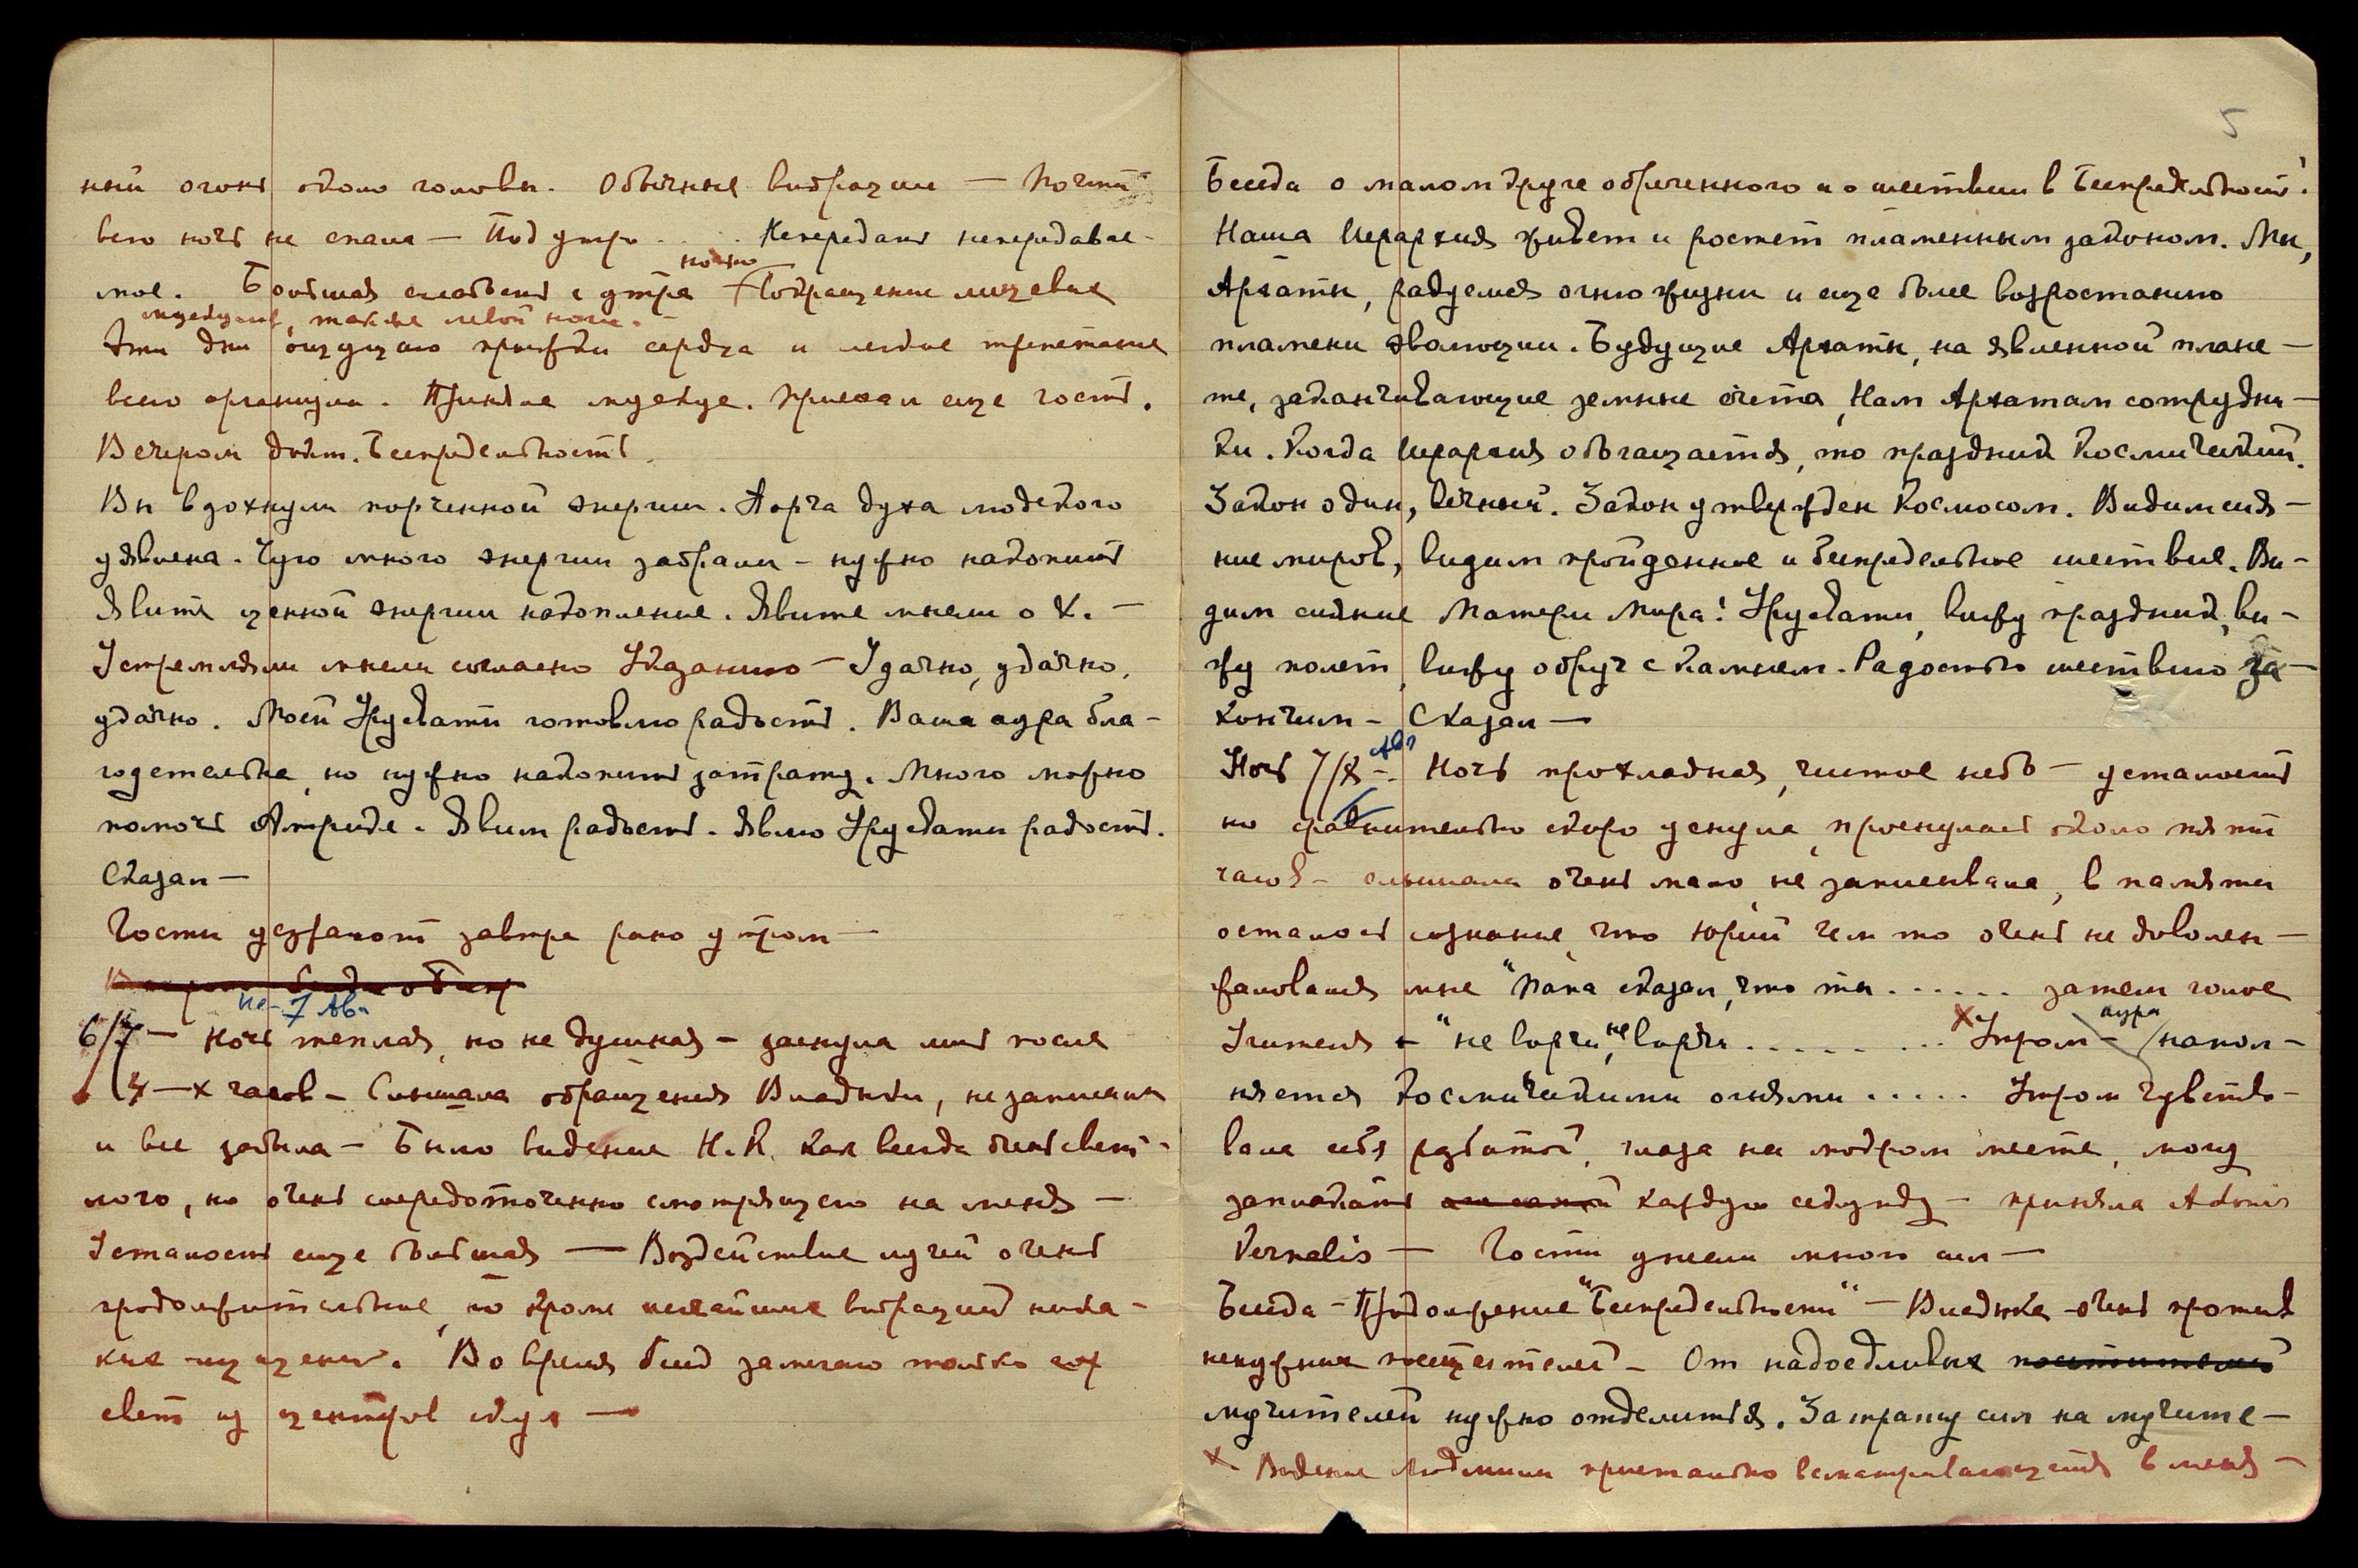 ный огонь около головы. Обычные вибрации — Почти
всю ночь не спала — Под утро . . . . Передать непередавае-
мое. Большая слабость с утра — Сокращение лицевых
ночью
мускулов, также левой ноги. —
Эти дни ощущаю прыжки сердца и легкое трепетание
всего организма. Приехал еще гость.
Вечером дикт. Беспредельность.
Вы вдохнули порченной энергии. Порча духа людского
уявлена. Чую много энергии забрали — нужно накопить
Явите ценной энергии накопление. Явите мысли о Х. —
Устремляли мысли согласно Указанию — Удачно, удачно,
удачно. Моей Урусвати готовлю радость. Ваша аура бла-
годетельна, но нужно накопить затрату. Много можно
помочь Явим радость. Явлю Урусвати радость.
Сказал —
Гости уезжают завтра рано утром —
на 7 Ав.
6/7 — Ночь теплая, но не душная — заснула лишь после
4-х часов — Слышала обращения Владыки, не записала
и все забыла — Было видение Н.К. как всегда очень свет-
лого, но очень сосредоточенно смотрящего на меня —
Усталость еще большая — Воздействие лучей очень
продолжительное, но кроме легчайших вибраций ника-
ких ощущений. Во время бесед замечаю только
свет из центров скул —
5
Беседа о малом друге обреченного и о шествии в Беспредельность.
Наша Иерархия живет и ростет пламенным законом. Мы,
Архаты, радуемся огню жизни и еще более возростанию
пламени эволюции. Будущие Архаты, на явленной плане-
те, заканчивающие земные счета, Нам Архатам сотрудни-
ки. Когда Иерархия обогащается, то праздник Космический.
Закон один, вечный. Закон утвержден Космосом. Видим сия-
ние миров, видим пройденное и беспредельное шествие. Ви-
дим сияние Матери Мира! Урусвати, вижу праздник, ви-
жу полет, вижу обруч с Камнем. Радостью шествию за-
кончим — Сказал —
Авг
Ночь 7/8 — Ночь прохладная, чистое небо — усталость
но сравнительно скоро уснула, проснулась около пяти
часов — слышала очень мало, не записывала, в памяти
осталось сознание, что Юрий чем то очень не доволен —
жаловался мне "Папа сказал, что ты . . . . . . затем голос
Учителя — "не ворчи, не ворчи . . . . . . . . × Утром — аура / напол-
няется Космическими огнями . . . . . Утром чувство-
вала себя разбитой, глаза на мокром месте, могу
заплакать каждую секунду — приняла Adonis
Vernalis — Гости унесли много сил —
Беседа — Продолжение "Беспредельности" — Владыка очень против
ненужных посетителей — От надоедливых посетителей
мучителей нужно отделиться. Затрату сил на мучите-
× Видение Людмилы пристально всматривающейся в меня —